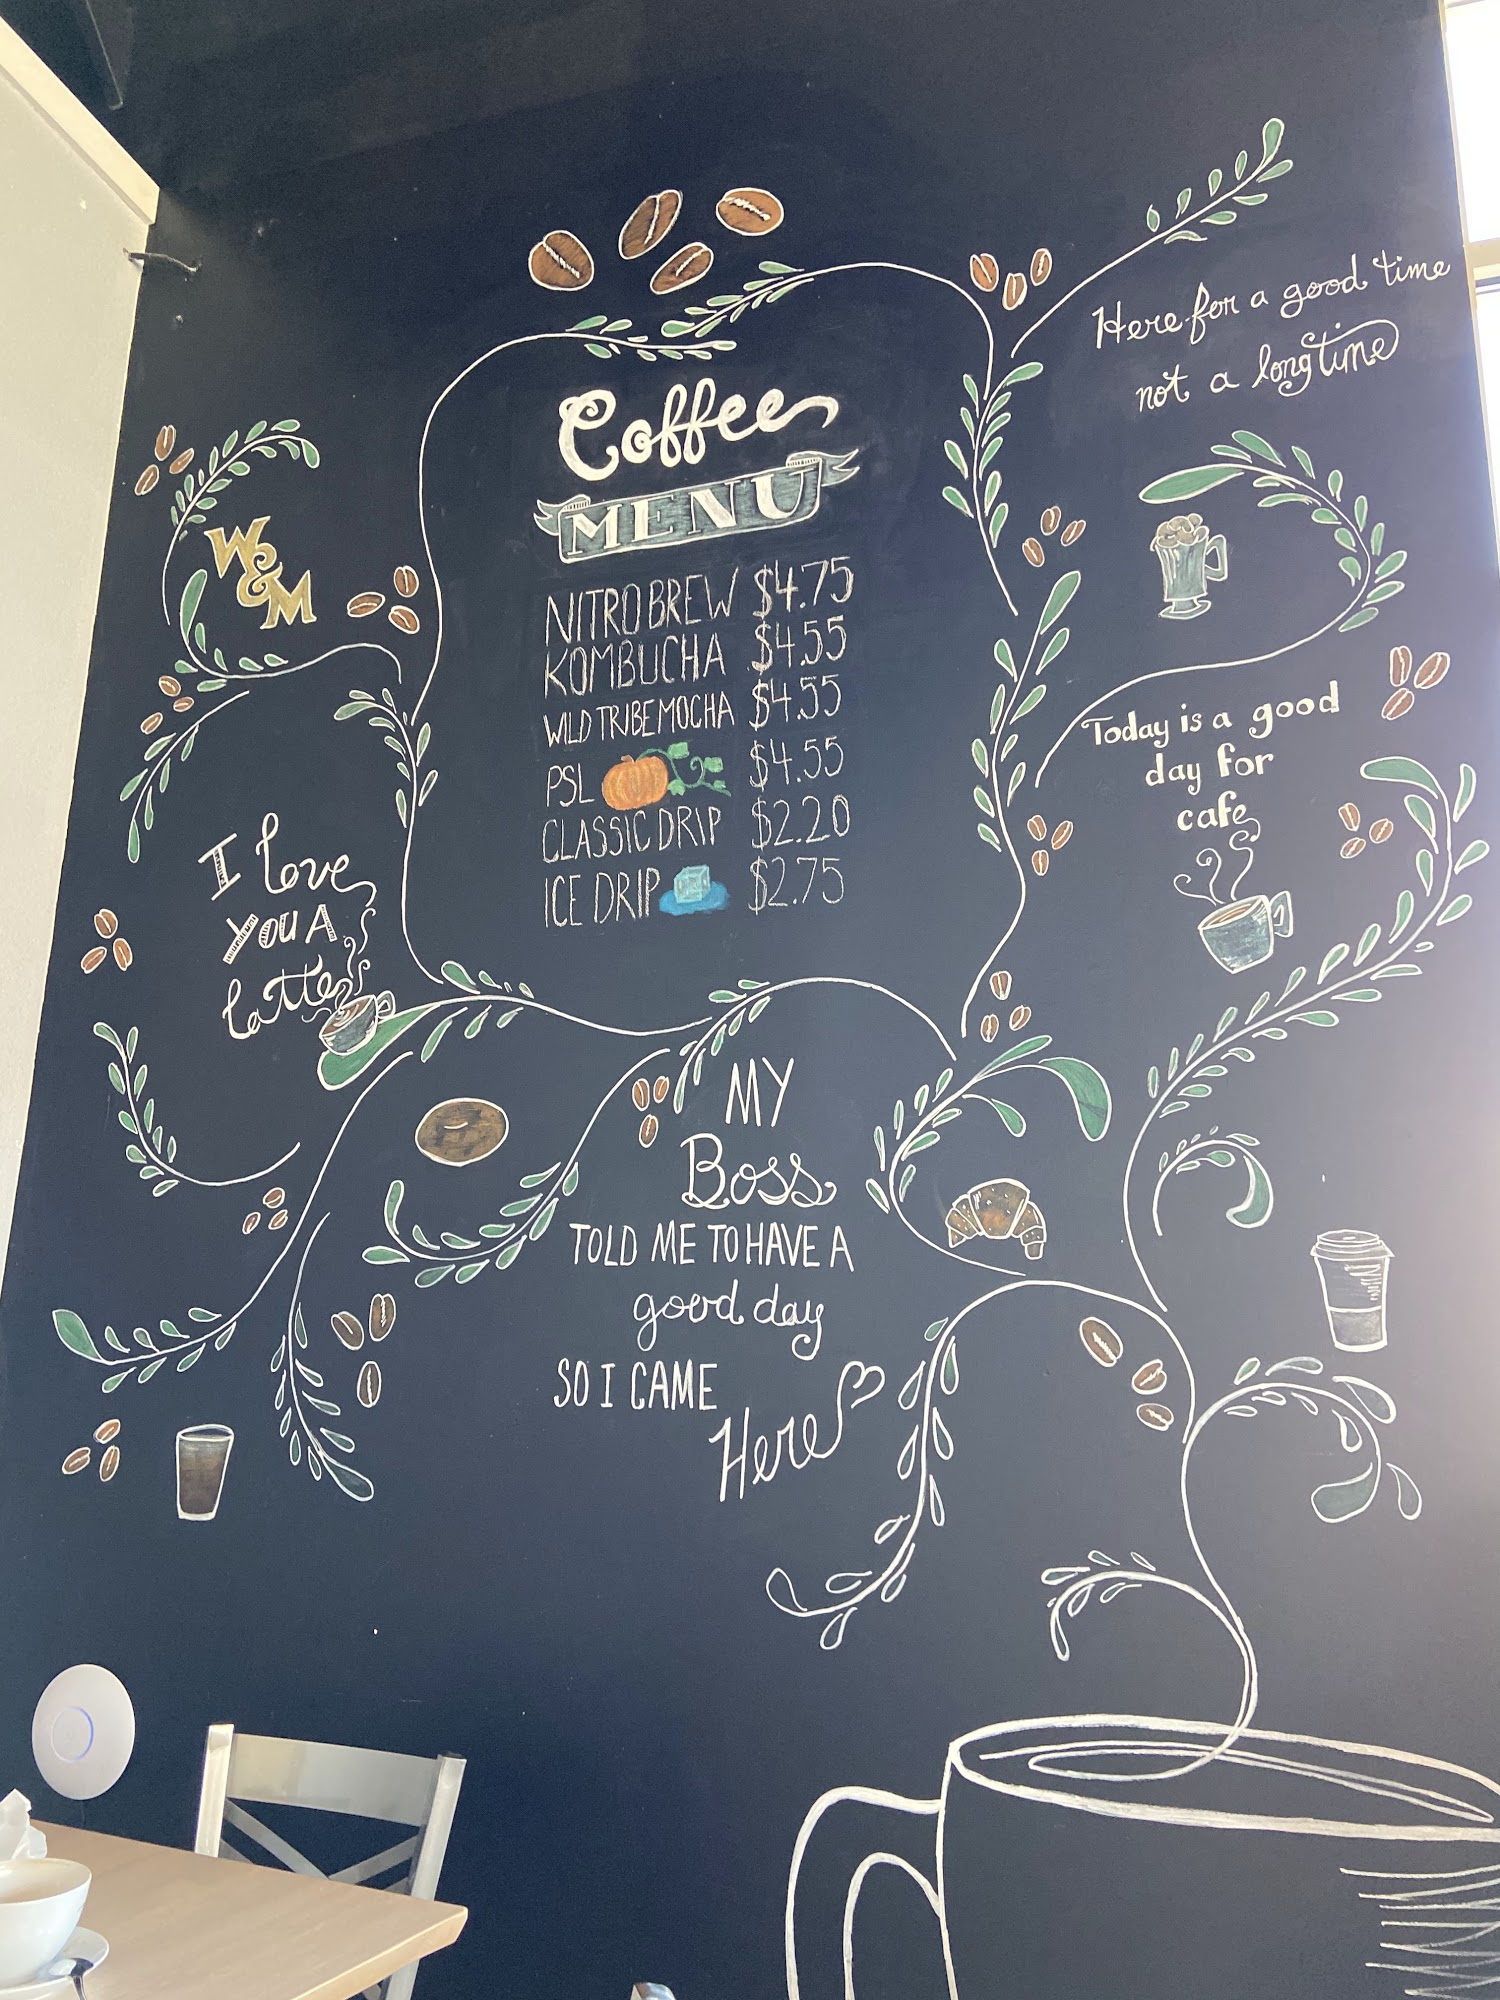 Coffee
MENU
NITRO BREW $4.75
KOMBUCHA $4.55
WILD TRIBE MOCHA $4.55
PSL $4.55
CLASSIC DRIP $2.20
ICE DRIP $2.75
Here for a good time
not a long time
W&M
Today is a good
day for
cafe
I love
YOU A
latte
MY
Boss
TOLD ME TO HAVE A
good day
SO I CAME
Here